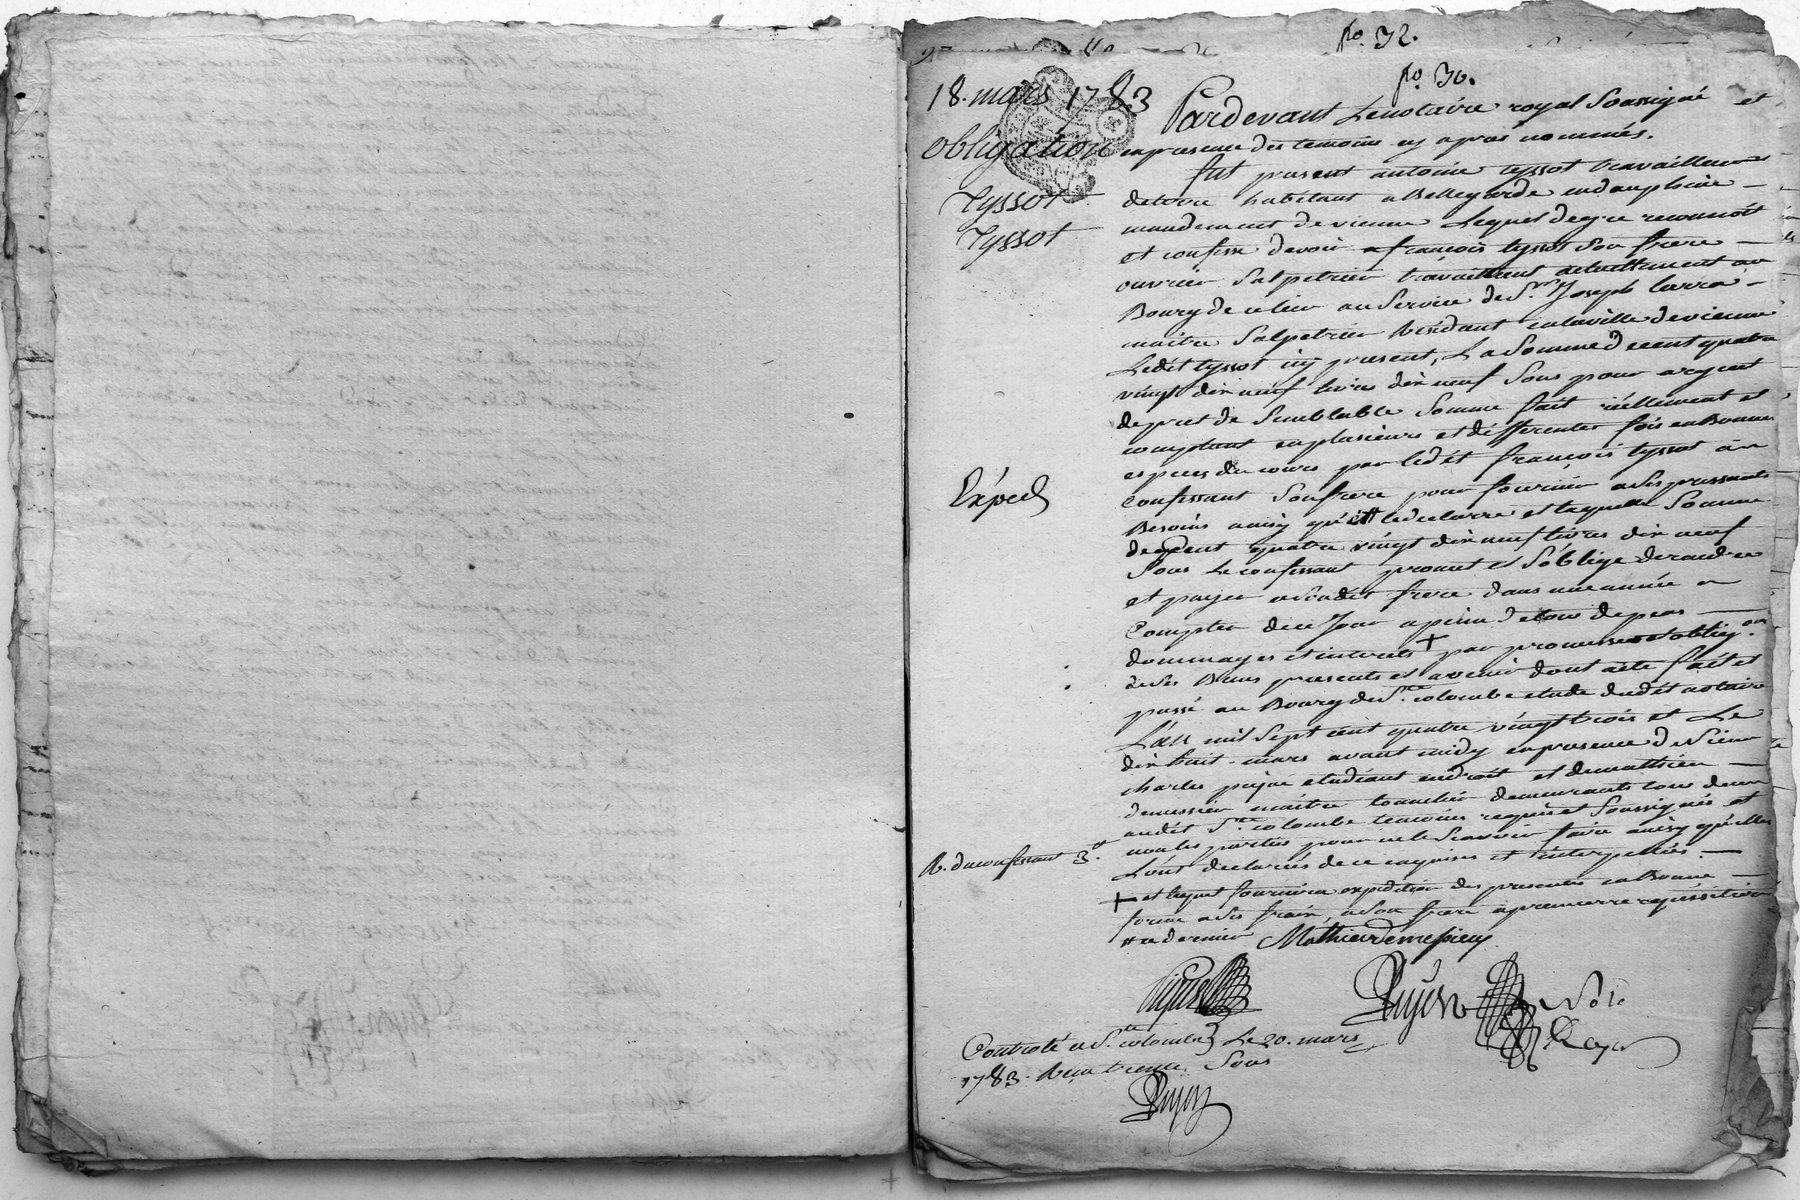 fo. 32.
fo. 30.
18. mars 1783
obligation
Tyssot
Tyssot
Expedé
R. du confessant 3.tt
Pardevant Le notaire royal Soussigné et
en presence des temoins cy apres nommés.
fut present antoine tyssot travailleur
de terre habitant a Bellegarde en dauphiné
mandement de vienne Lequel de gre reconnoit
et confesse devoir a françois tyssot Son frere
ouvrier Salpetrier travaillant actuellement au
Bourg de ce lieu au Service de Sr. Joseph
maitre Salpetrier résidant en la ville de vienne
Ledit tyssot icy present, La Somme de cent quatre
vingt dix neuf livres dix neuf Sous pour argent
de pret de Semblable Somme fait réellement et
comptant en plusieurs et differentes fois en Bonnes
especes du cours par ledit françois tyssot au
confessant Son frere pour fournir a Ses pressants
Besoins ainsy qu'il le declare et laquelle Somme
de cent quatre vingt dix neuf livres dix neuf
Sous Le confessant promet et S'oblige de rendre
et payer a Sondit frere dans une année a
Compter de ce Jour a peine de tous depens
dommages et interets + par promesse et oblig.on
de Ses Biens presents et avenir dont acte fait et
passé au Bourg de Ste. colombe etude dudit notaire
L'an mil Sept cent quatre vingt trois et Le
dix huit mars avant midy en presence de Sieur
charles etudiant en droit et de mathieu
demessieu maitre tonnelier demeurants tous deux
audit Ste. colombe temoins requis et Soussignés et
non les parties pour ne le Scavoir faire ainsy qu'elles
L'ont declarés de ce enquises et interpellées.
+ et lequel fournira expedition des presentes en Bonne
forme a Ses frais, a Son frere a premiere requisition
de ce dernier Mathieu demessieu
Pujon
Controlé a Ste. colombe Le 20. mars
1783. Reçu trente Sous
Pujon